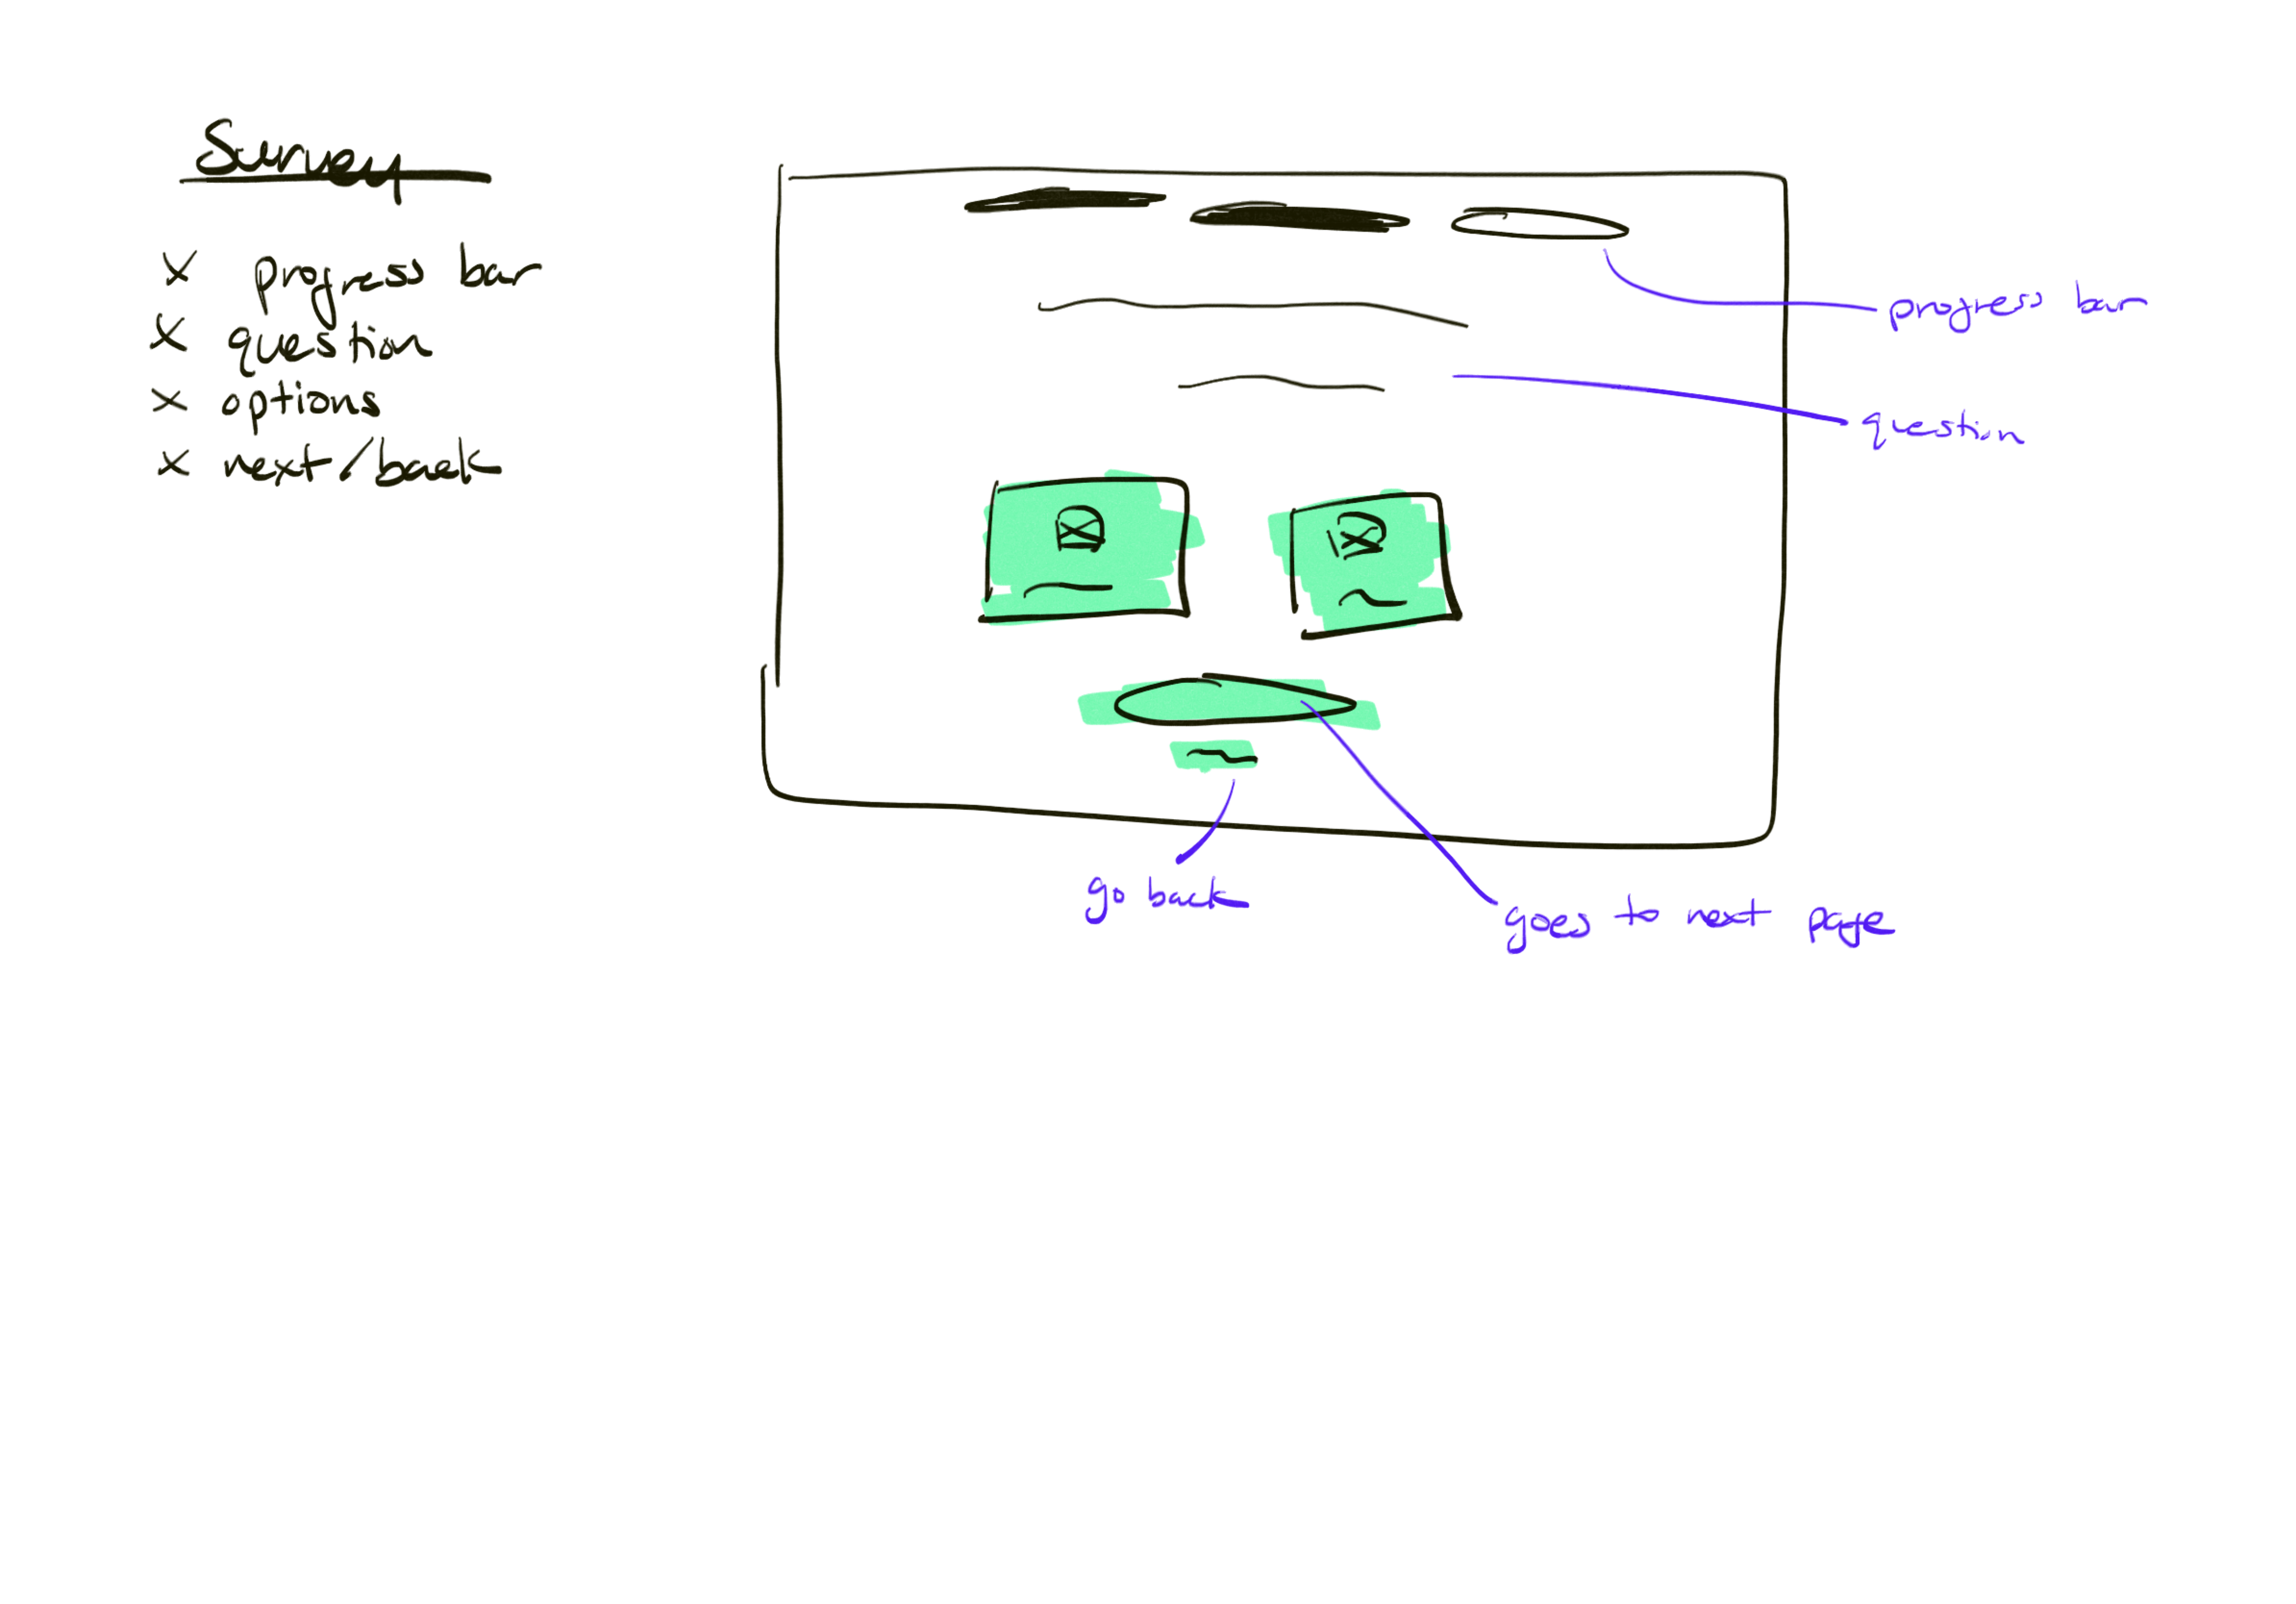 Survey
x progress bar
x question
x options
x next/back
progress bar
question
go back
goes to next page